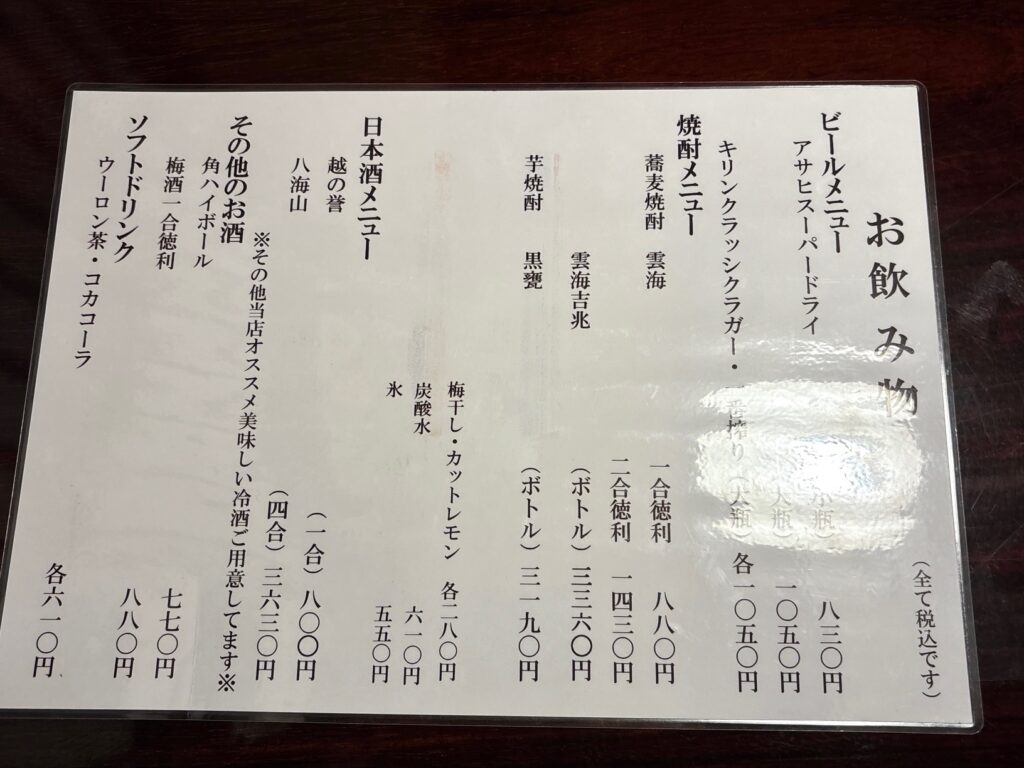 お飲み物
(全て税込です)
ビールメニュー
アサヒスーパードライ 小瓶) 八三〇円
大瓶) 一〇五〇円
キリンクラッシクラガー・一番搾り(大瓶) 各一〇五〇円
焼酎メニュー
蕎麦焼酎 雲海 一合徳利 八八〇円
二合徳利 一四三〇円
雲海吉兆 (ボトル)三三六〇円
芋焼酎 黒甕 (ボトル)三一九〇円
梅干し・カットレモン 各二八〇円
炭酸水 六一〇円
氷 五五〇円
日本酒メニュー
越の誉 (一合)八〇〇円
八海山 (四合)三六三〇円
※その他当店オススメ美味しい冷酒ご用意してます※
その他のお酒
角ハイボール 七七〇円
梅酒一合徳利 八八〇円
ソフトドリンク
ウーロン茶・コカコーラ 各六一〇円